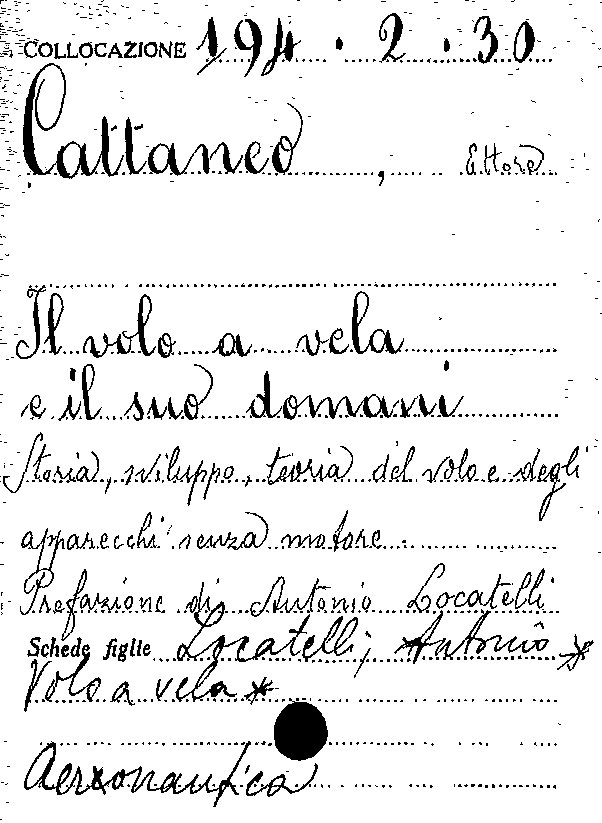 COLLOCAZIONE 194 . 2 . 30
Cattaneo, Ettore
Il volo a vela
e il suo domani
Storia, sviluppo, teoria del volo e degli
apparecchi senza motore.
Prefazione di Antonio Locatelli
Schede figlie Locatelli, Antonio *
Volo a vela *
Aeronautica